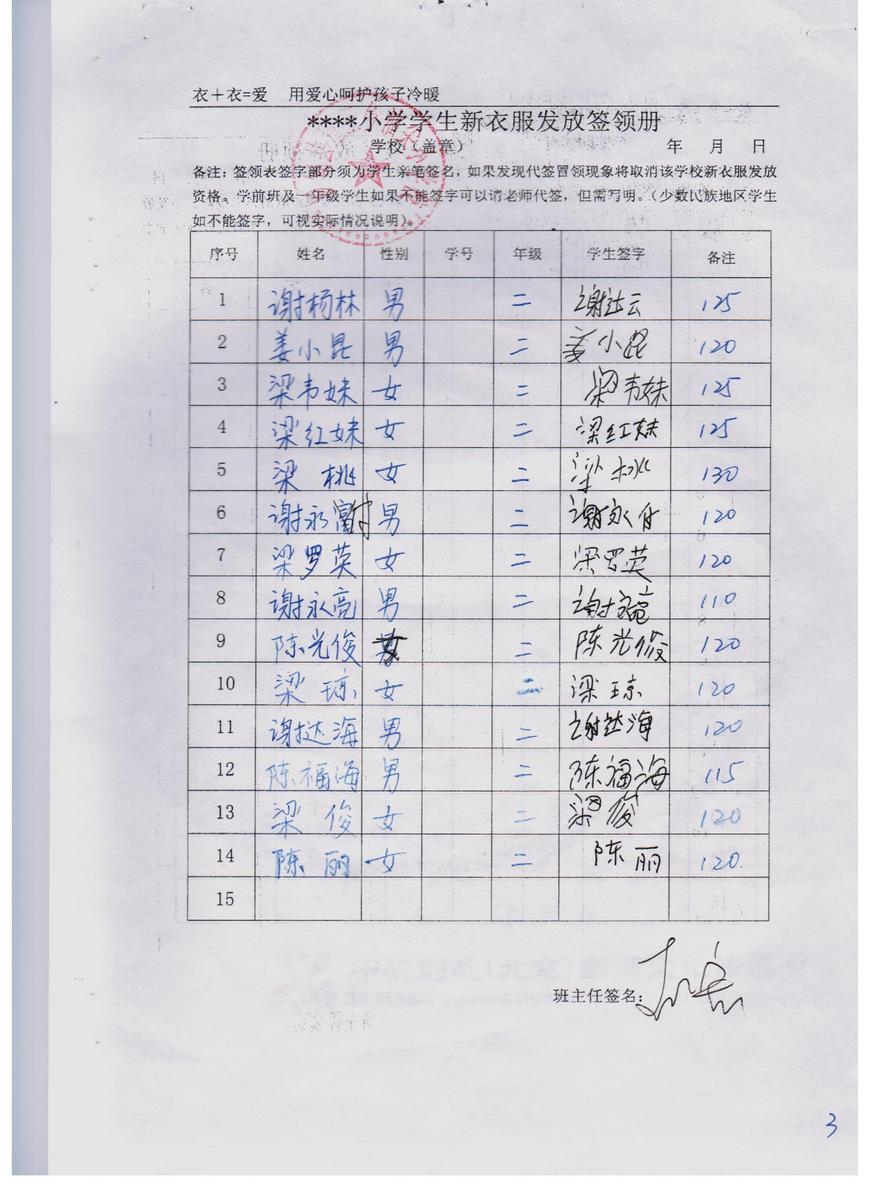 衣＋衣=爱 用爱心呵护孩子冷暖
****小学学生新衣服发放签领册
学校（盖章） 年 月 日
备注：签领表签字部分须为学生亲笔签名，如果发现代签冒领现象将取消该学校新衣服发放
资格。学前班及一年级学生如果不能签字可以请老师代签，但需写明。（少数民族地区学生
如不能签字，可视实际情况说明）。
序号 姓名 性别 学号 年级 学生签字 备注
1 谢杨林 男 二 谢达云 125
2 姜小昆 男 二 姜小昆 120
3 梁韦妹 女 二 梁韦妹 125
4 梁红妹 女 二 梁红妹 125
5 梁桃 女 二 梁 130
6 谢永 男 二 谢永付 120
7 梁罗英 女 二 梁罗英 120
8 谢永亮 男 二 谢永亮 110
9 陈光俊 女 二 陈光俊 120
10 梁琼 女 二 梁琼 120
11 谢达海 男 二 谢达海 120
12 陈福海 男 二 陈福海 115
13 梁俊 女 二 梁俊 120
14 陈丽 女 二 陈丽 120.
15
班主任签名：
3